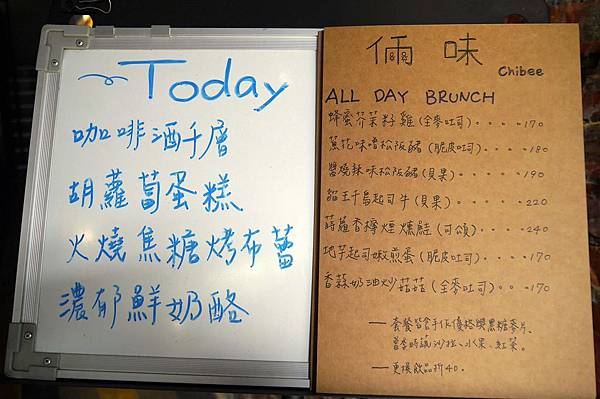 Today
咖啡酒千層
胡蘿蔔蛋糕
火燒焦糖烤布蕾
濃郁鮮奶酪
倆味
Chibee
ALL DAY BRUNCH
蜂蜜芥茉籽雞(全麥吐司)····170
蔥花味噌松阪豬(脆皮吐司)····180
醬燒辣味松阪豬(貝果)·····190
貓王千島起司牛(貝果)·····220
蒔蘿香檸煙燻鮭(可頌)····240
地芋起司嫩煎蛋(脆皮吐司)···170
香蒜奶油炒菇菇(全麥吐司)··170
—套餐皆含手作優格與黑糖麥片、
當季時蔬沙拉、水果、紅茶。
—更換飲品折40。